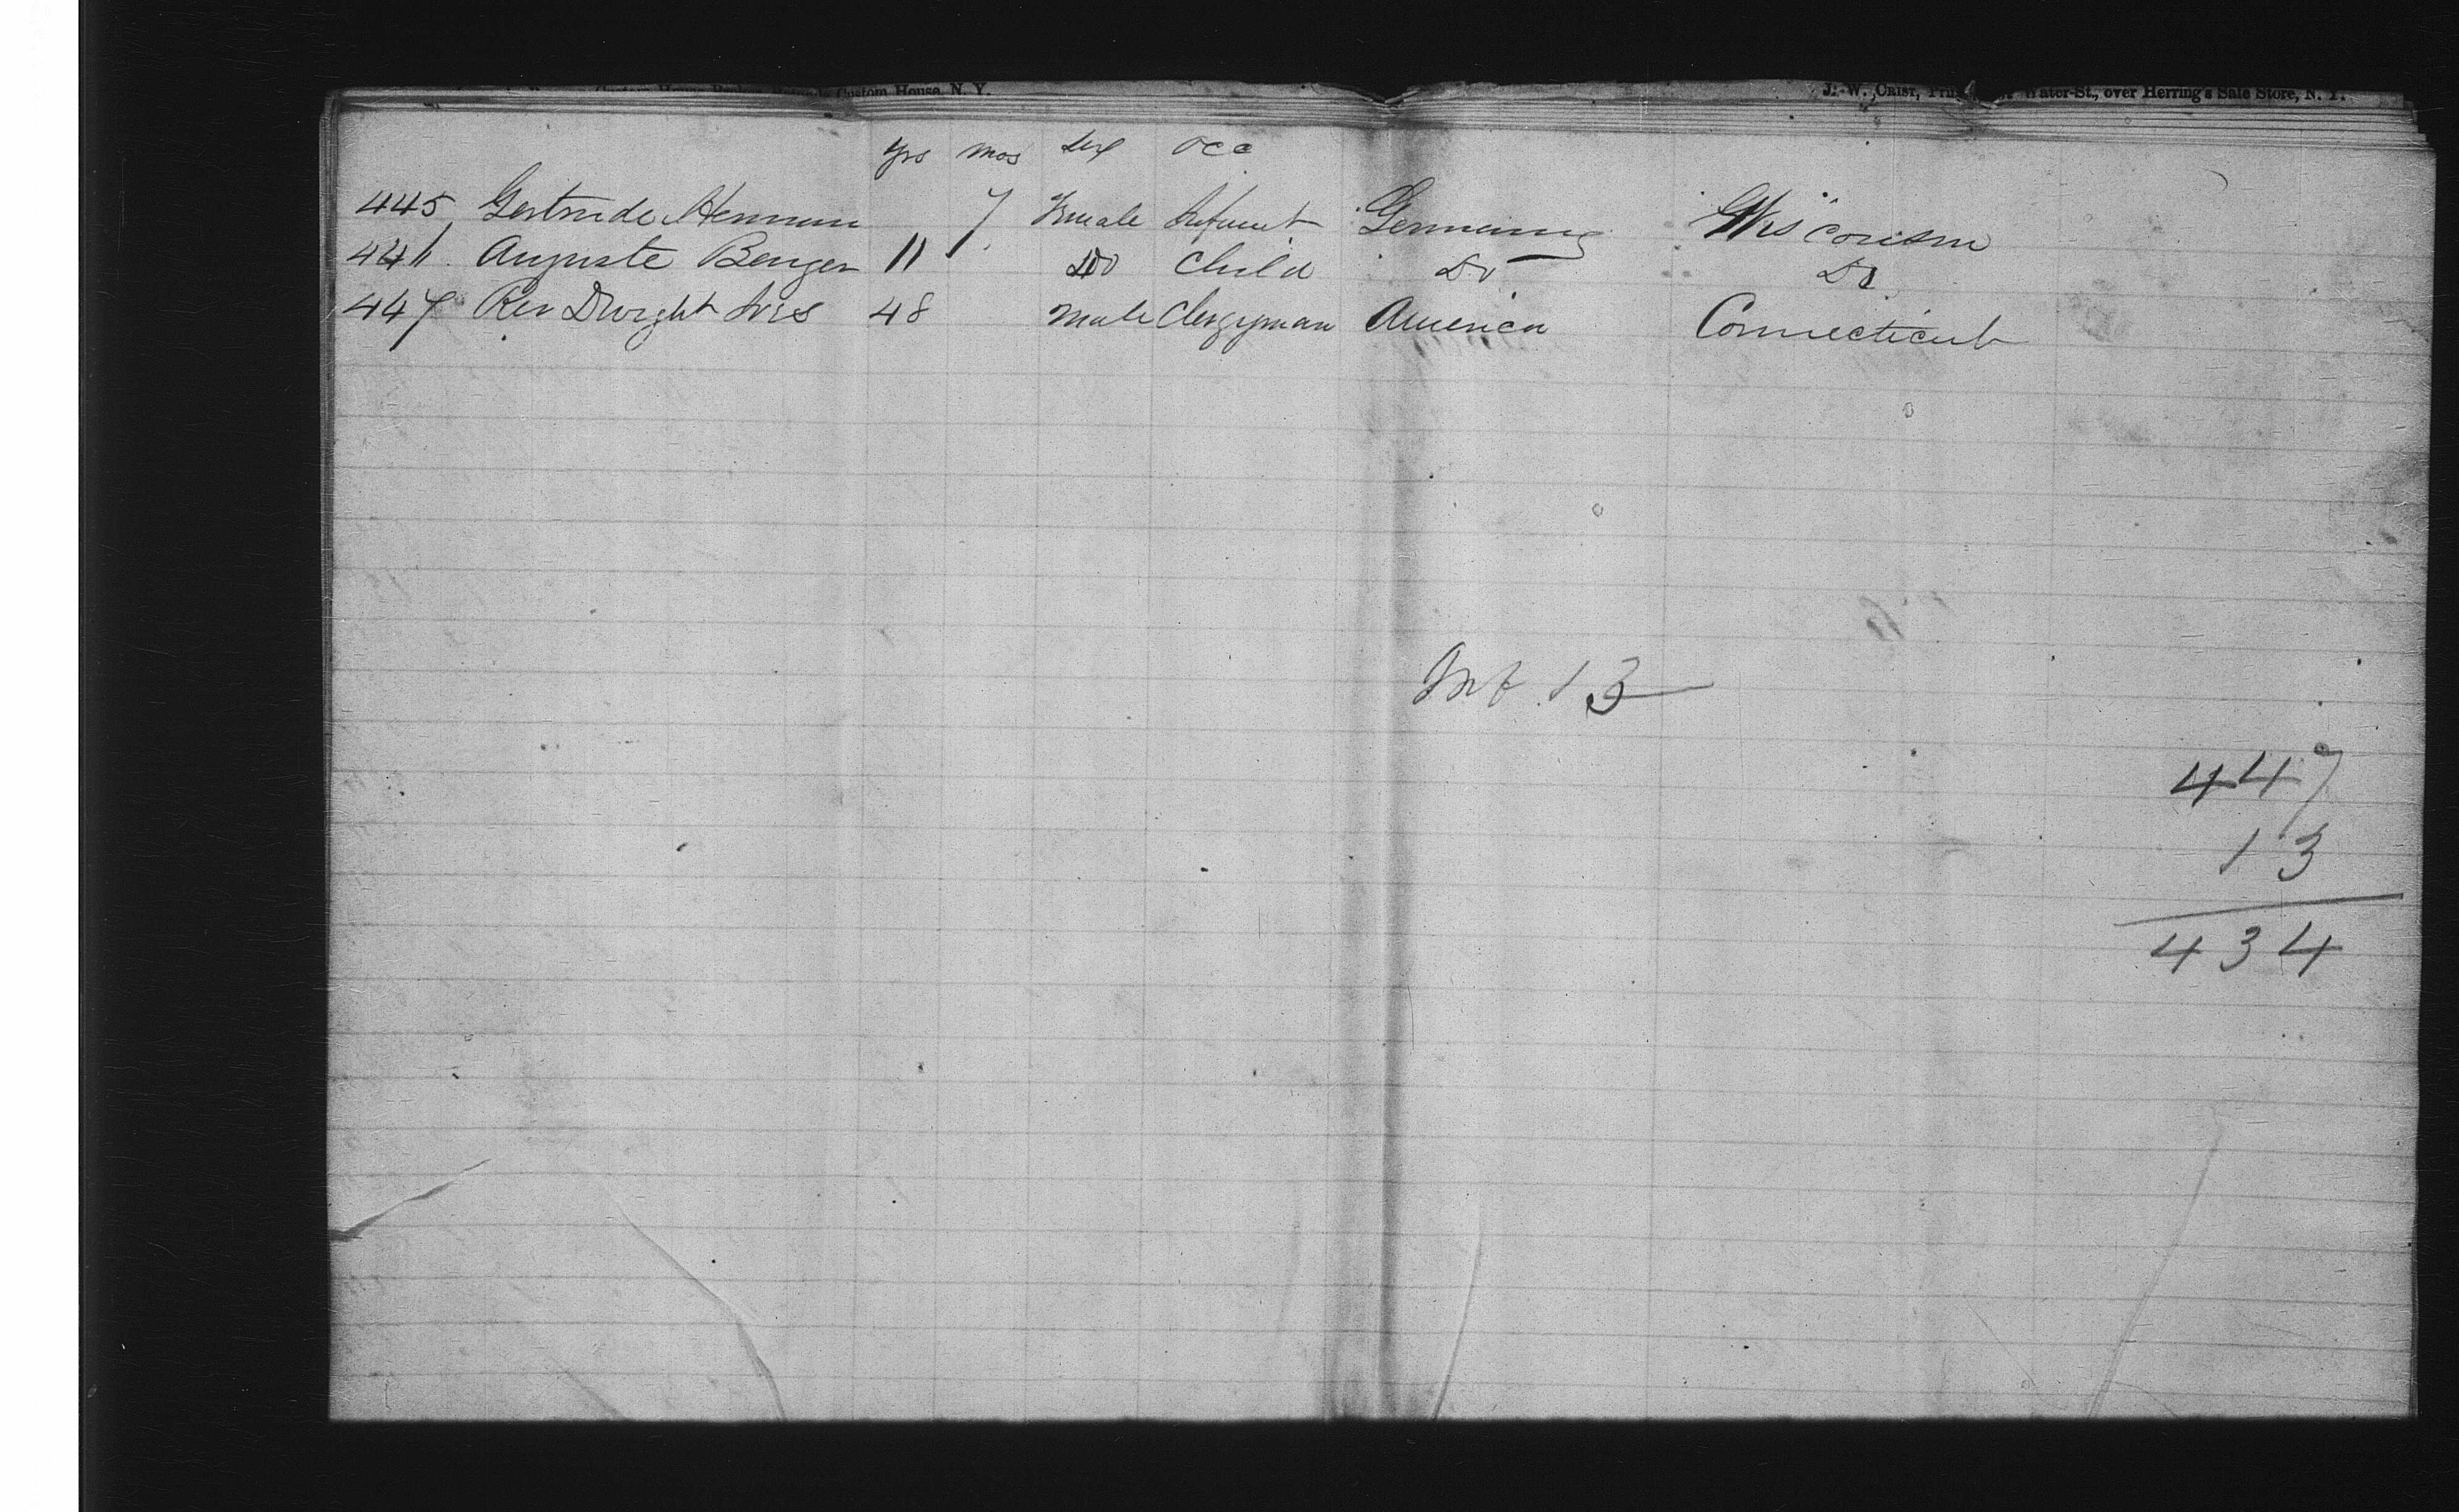 Custom House, N. Y.
J. W. Crist, Water-St., over Herring's Safe Store, N. Y.
yrs mos sex occ
445 Gertrude Hermann 7 Female Infant Germany Wisconsin
446 Auguste Benger 11 Do Child Do Do
447 Rev Dwight Ives 48 male Clergyman America Connecticut
13
447
13
434